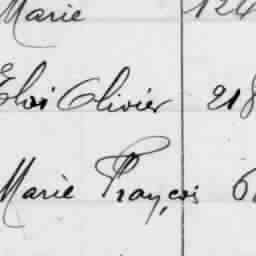 Marie 124
Eloi Olivier 218
Marie François 6